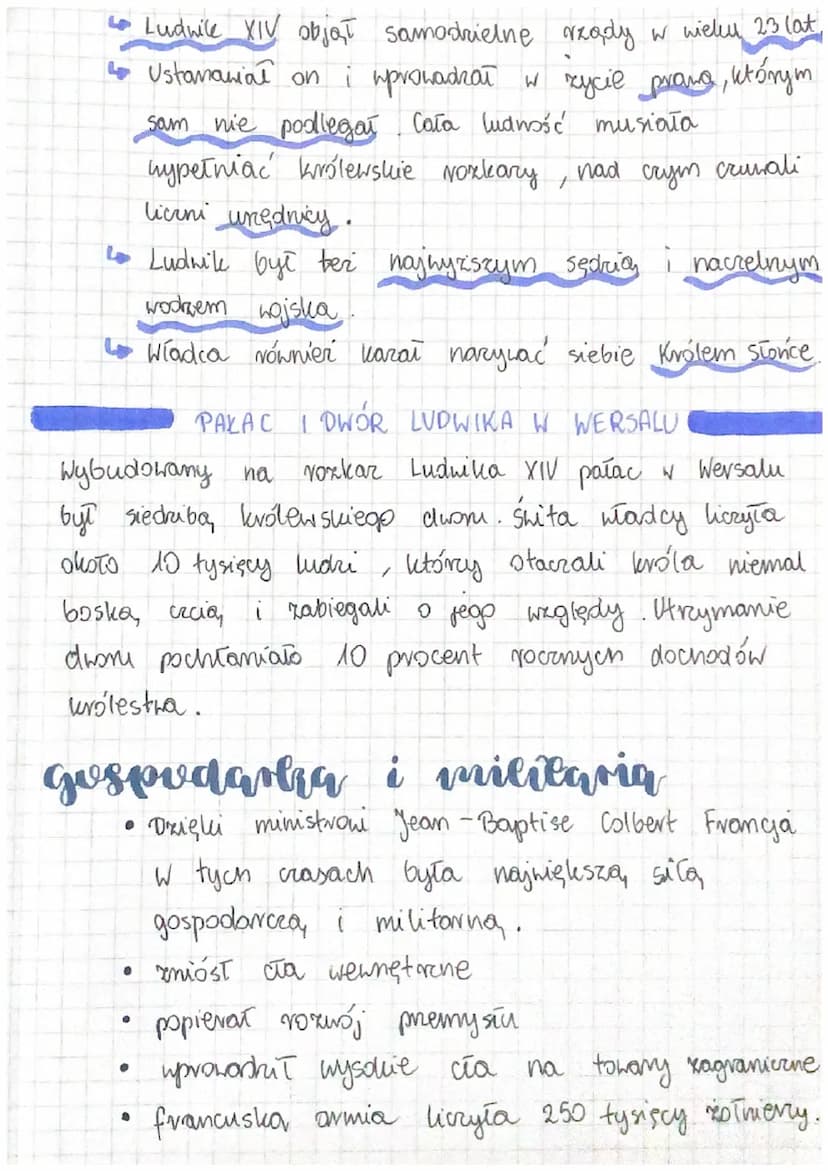 ↳ Ludwik XIV objął samodzielne rządy w wieku 23 lat.
↳ Ustanawiał on i wprowadzał w życie prawa, którym
sam nie podlegał. Cała ludność musiała
wypełniać królewskie rozkazy, nad czym czuwali
liczni urzędnicy.
↳ Ludwik był też najwyższym sędzią i naczelnym
wodzem wojska.
↳ Władca również kazał nazywać siebie Królem Słońce.
PAŁAC I DWÓR LUDWIKA W WERSALU
Wybudowany na rozkaz Ludwika XIV pałac w Wersalu
był siedzibą królewskiego dworu. Świta władcy liczyła
około 10 tysięcy ludzi, którzy otaczali króla niemal
boską czcią i zabiegali o jego względy. Utrzymanie
dworu pochłaniało 10 procent rocznych dochodów
królestwa.
gospodarka i militaria
• Dzięki ministrowi Jean-Baptise Colbert Francja
w tych czasach była największą siłą
gospodarczą i militarną.
• zniósł cła wewnętrzne
• popierał rozwój przemysłu
• wprowadził wysokie cła na towary zagraniczne
• francuska armia liczyła 250 tysięcy żołnierzy.